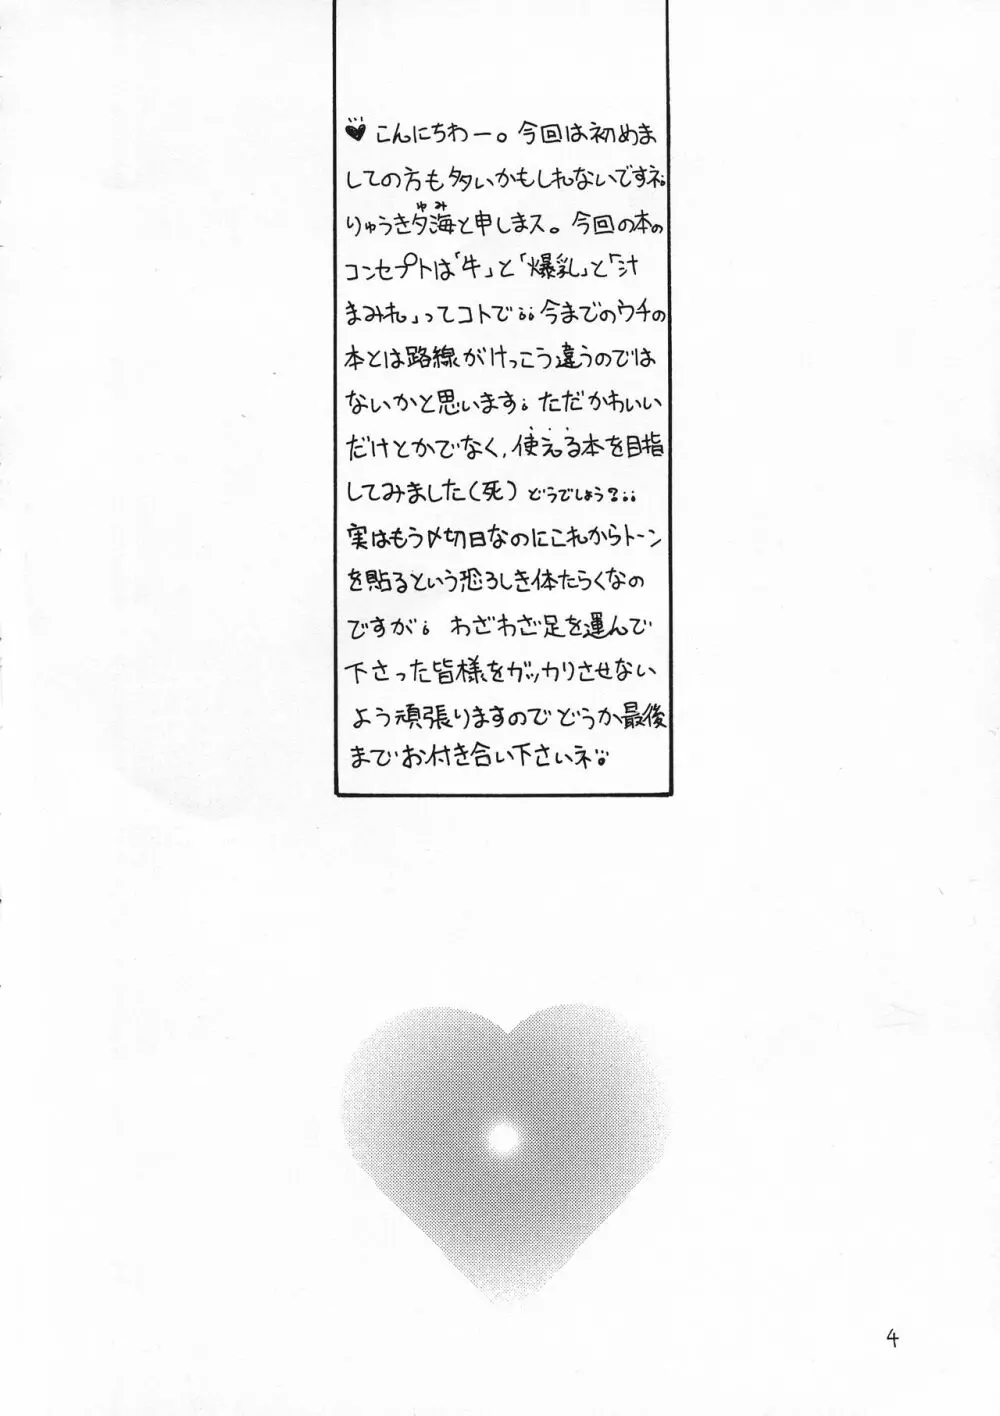 ♥こんにちわー。今回は初めま
しての方も多いかもしれないですネ。
りゅうき夕海と申しまス。今回の本の
ゆみ
コンセプトは「牛」と「爆乳」と「汁
まみれ」ってコトで。。今までのウチの
本とは路線がけっこう違うのでは
ないかと思います。ただかわいい
だけとかでなく,使える本を目指
してみました(死) どうでしょう?。。
実はもう〆切日なのにこれからトーン
を貼るという恐ろしき体たらくなの
ですが。わざわざ足を運んで
下さった皆様をガッカリさせない
よう頑張りますのでどうか最後
までお付き合い下さいネ。
4